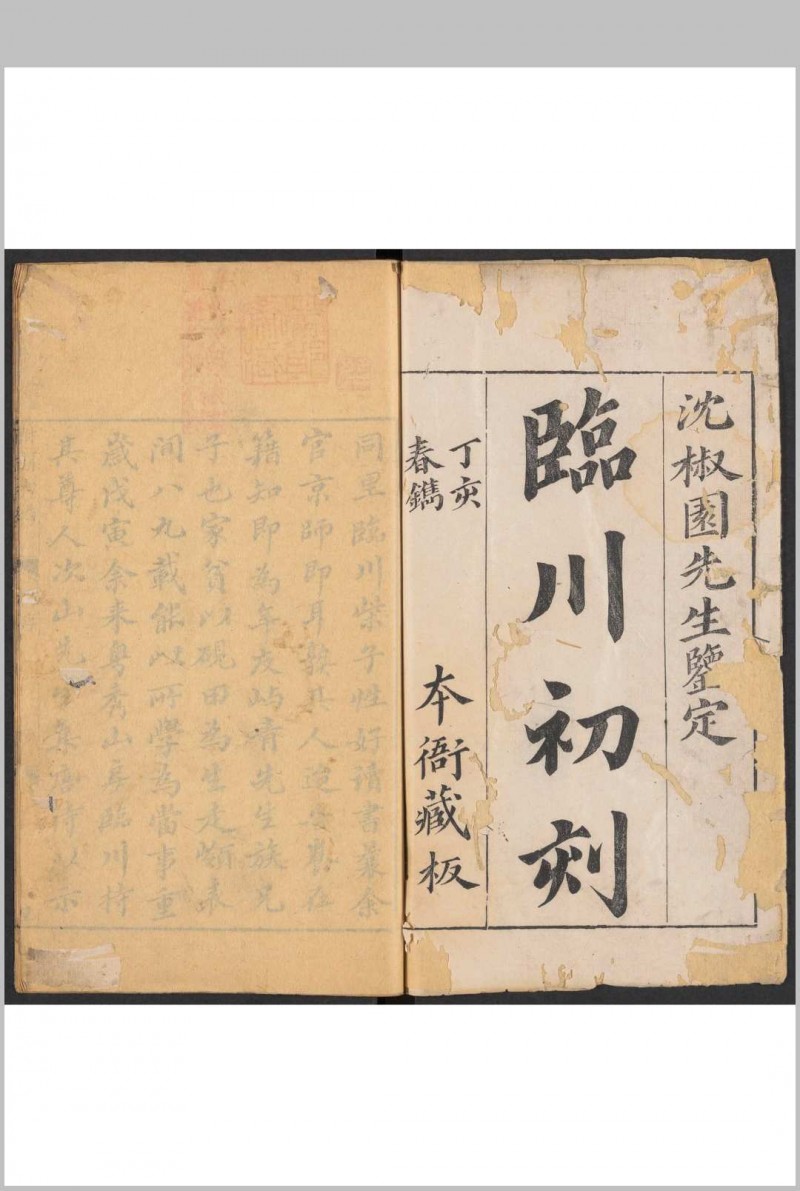 沈椒園先生鑒定
臨川初刻
丁亥
春鐫
本衙藏板
同里臨川柴子性好讀書業余
官京師即耳熟其人
籍知即為年友屿青先生族兄
子也家貧以硯田為生走嶺表
间八九載能以所學為當事重
歲戊寅余来粤秀山房臨川持
其尊人次山先生集唐詩以示